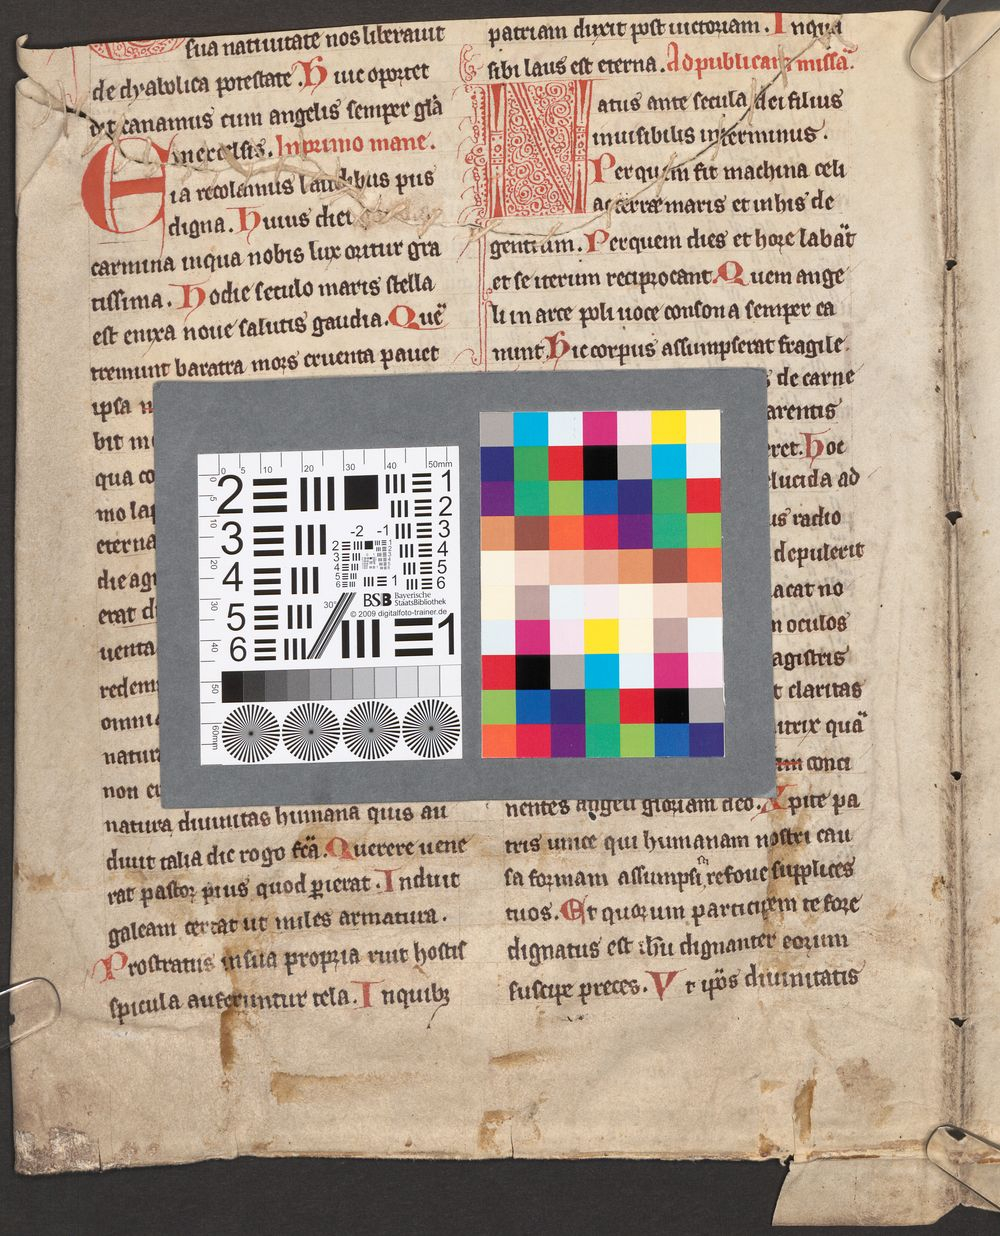 sua natiuitate nos liberauit
de dyabolica potestate. Huic oportet
ut canamus cum angelis semper gl̄a
in excelsis. In primo mane.
Eia recolamus laudibus piis
digna. Huius diei
carmina in qua nobis lux oritur gra
tissima. Hodie seculo maris stella
est enixa noue salutis gaudia. Quē
tremunt baratra mors cruenta pauet
ipsa
bit
qua
mo
eterna
die
erat
uenta
redem
omni
natur
non
natura diuinitas humana quis au
diuit talia dic rogo fc̄a. Querere uene
rat pastor pius quod pierat. Induit
galeam certat ut miles armatura.
Prostratus in sua propria ruit hostis
spicula auferuntur tela. In quibꝫ
patriam duxit post uictoriam. In qua
sibi laus est eterna. Ad publicam missā.
Natus ante secula dei filius
inuisibilis interminus.
Per quem fit machina celi
ac terre maris et in his de
gentium. Per quem dies et hore labāt
et se iterum reciprocant. Quem ange
li in arce poli uoce consona semper ca
nunt. Hic corpus assumpserat fragile.
de carne
arentis
ret. Hoc
lucida ad
us radio
depulerit
acat no
m oculos
agistris
t claritas
trix quā
conci
nentes angeli gloriam deo. Xpite pa
tris unice qui humanam nostri cau
sa formam assumpsi refoue supplices
tuos. Et quorum participem te fore
dignatus est ih̄u dignanter eorum
suscipe preces. Vt ipōs diuinitatis
0 5 10 20 30 40 50mm
2 1
2
3 -2 -1 3
4 4
5 5
6 6
30°
BSB Bayerische StaatsBibliothek
© 2009 digitalfoto-trainer.de
1
0 5 10 20 30 40 50 60mm